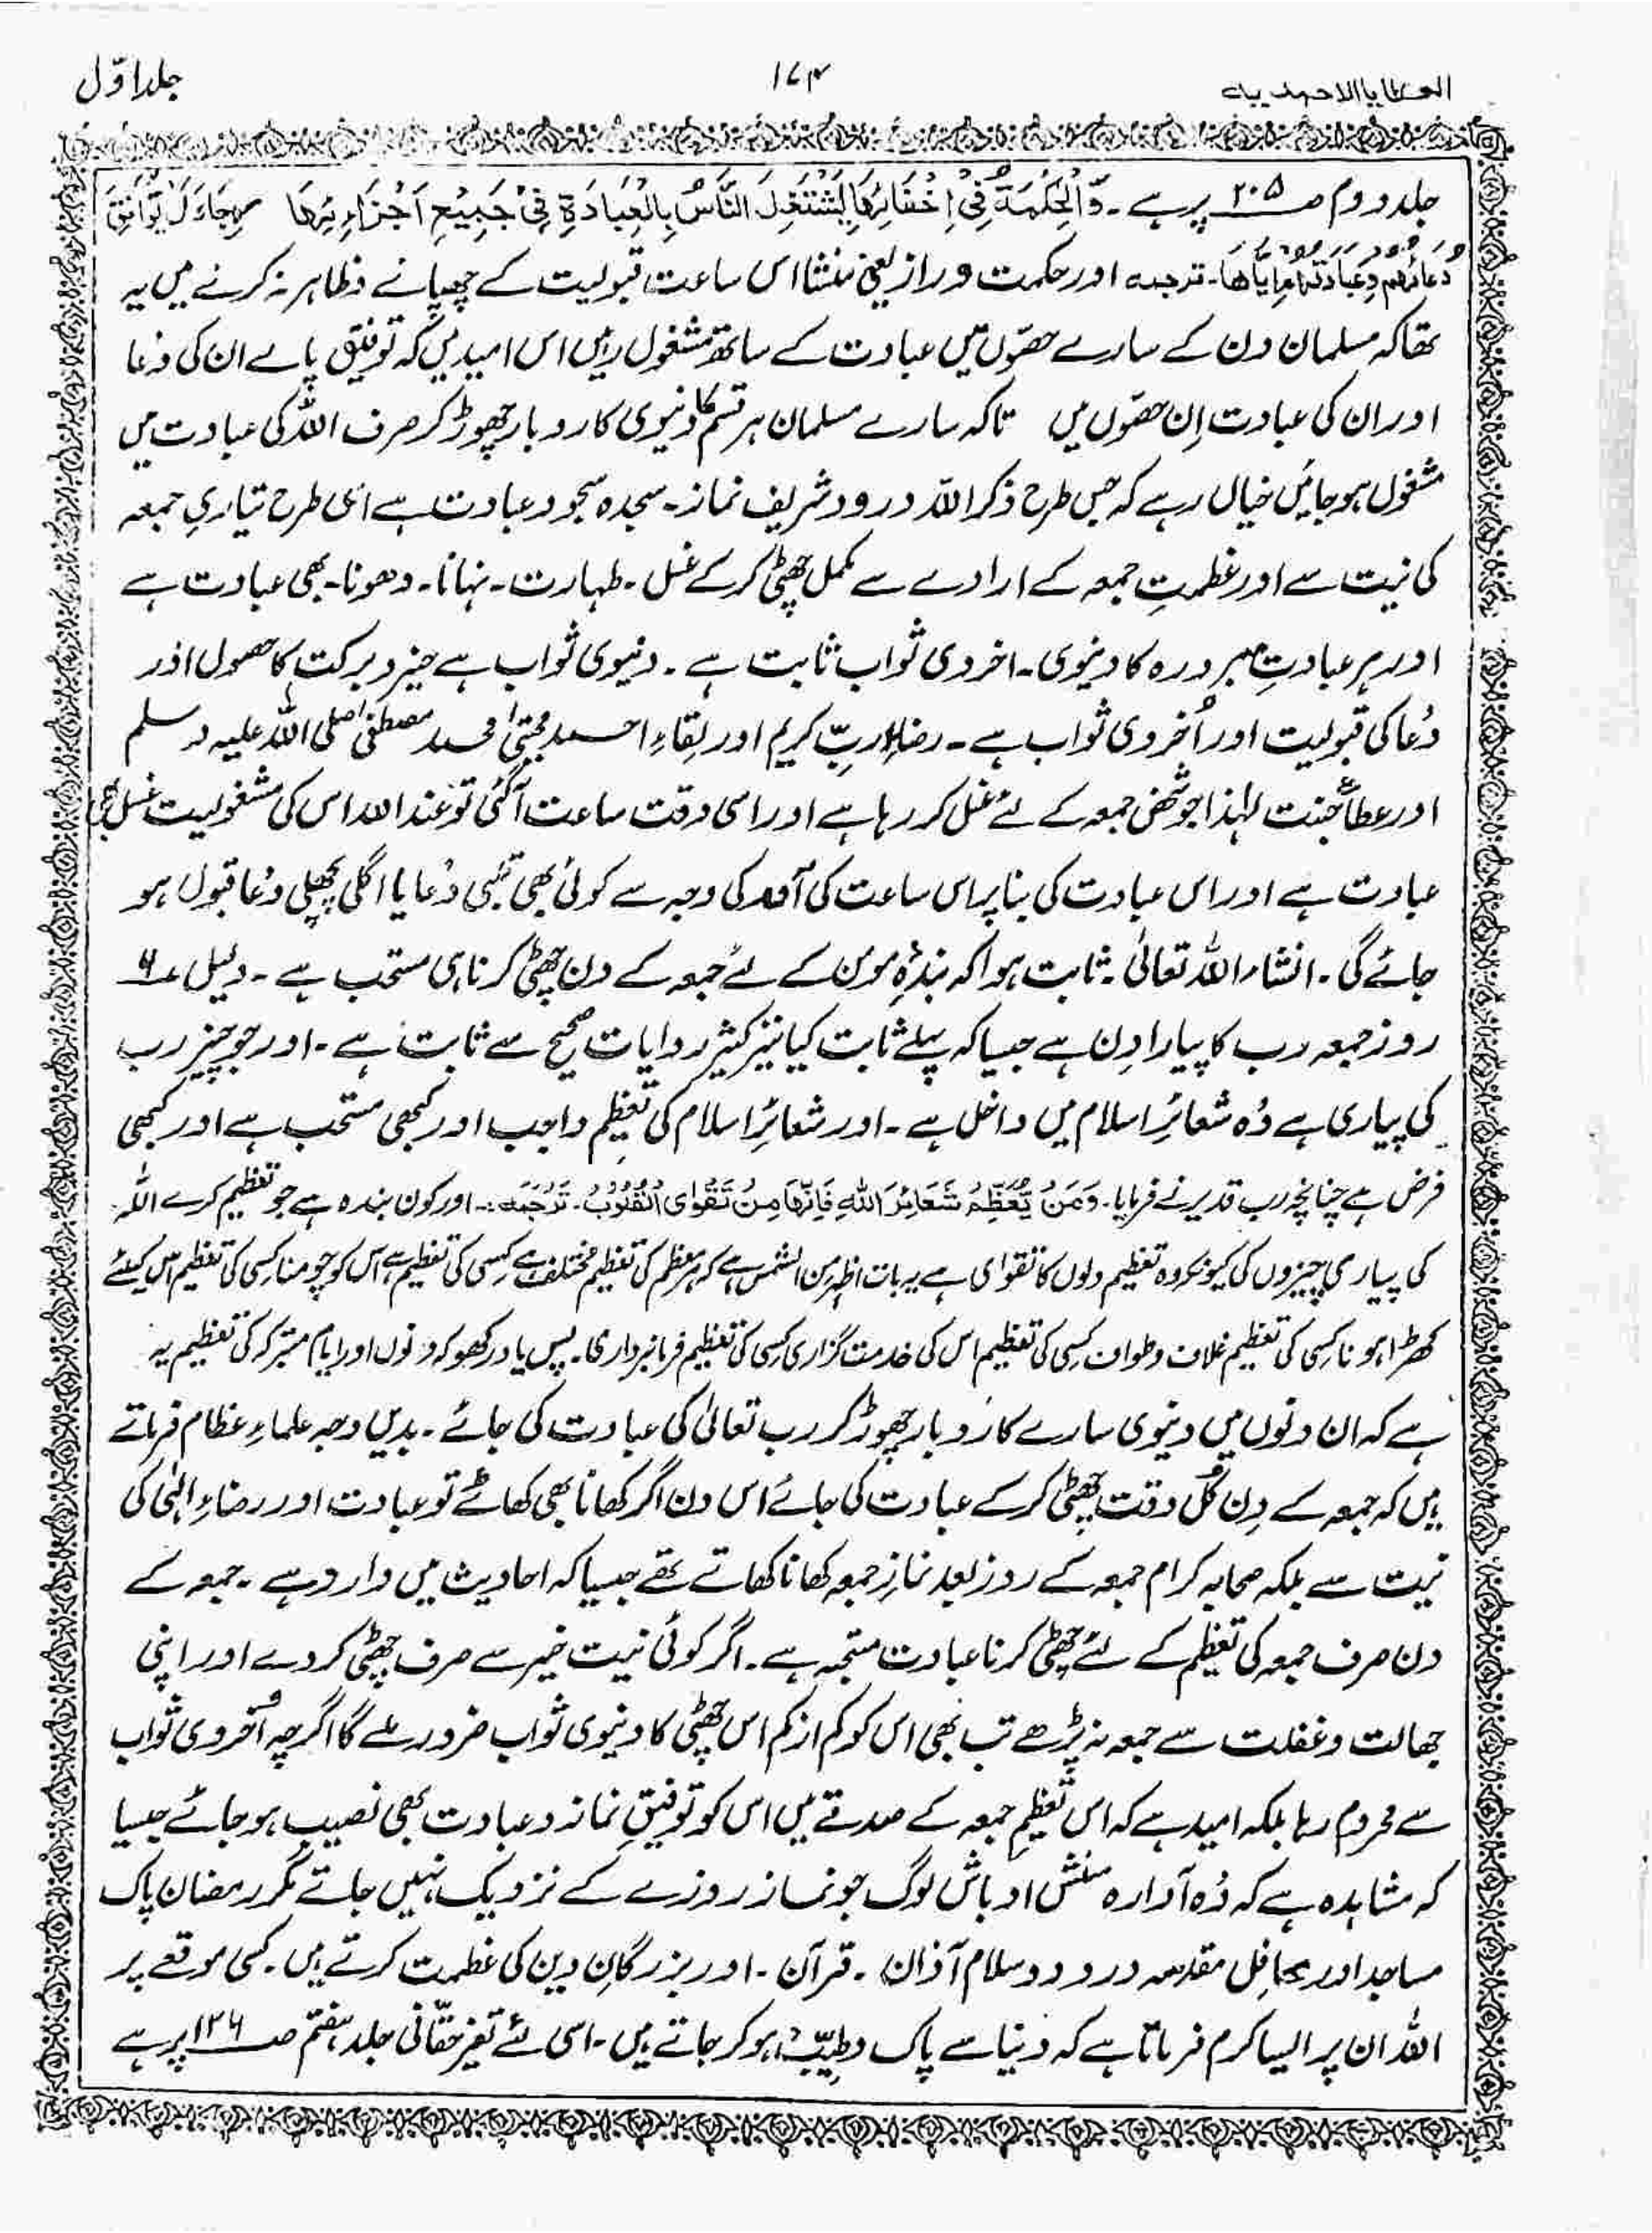 العطایا الاحمدیہ ۱۷۴ جلد اوّل
جلد دوم صـ۲۰۵ پر ہے۔ وَّالْحِکْمَۃُ فِیْ اِخْفَائِہَا لِیَشْتَغِلَ النَّاسُ بِالْعِبَادَۃِ فِیْ جَمِیْعِ اَجْزَاءِ نَہَارِہَا رِجَاءَ
دُعَائُہُمْ وَعِبَادَتُہُمْ اِیَّاھَا۔ ترجمہ اور حکمت و راز یعنی منشا اس ساعت قبولیت کے چھپانے و ظاہر نہ کرنے میں یہ
تھا کہ مسلمان دن کے سارے حصّوں میں عبادت کے ساتھ مشغول رہیں اس امید میں کہ توفیق پائے ان کی دعا
اور ان کی عبادت اِن حصّوں میں تاکہ سارے مسلمان ہر قسم کا دنیوی کاروبار چھوڑ کر صرف اللہ کی عبادت میں
مشغول ہو جائیں خیال رہے کہ جس طرح ذکر اللہ درود شریف نماز۔ سجدہ سجود عبادت ہے اسی طرح تیاریِ جمعہ
کی نیت سے اور عظمتِ جمعہ کے ارادے سے مکمل چھٹی کر کے غسل۔ طہارت۔ نہانا۔ دھونا۔ بھی عبادت ہے
اور ہر عبادتِ مبرورہ کا دنیوی۔ اخروی ثواب ثابت ہے۔ دنیوی ثواب ہے خیر و برکت کا حصول اور
دُعا کی قبولیت اور اُخروی ثواب ہے۔ رضاءِ ربِّ کریم اور لِقاءِ احمد مجتبیٰ محمد مصطفیٰ صلی اللہ علیہ وسلم
اور عطاءِ جنت لہٰذا جو شخص جمعہ کے لئے غسل کر رہا ہے اور اسی وقت ساعت آگئی تو عند اللہ اس کی مشغولیت غسل بھی
عبادت ہے اور اس عبادت کی بنا پر اس ساعت کی آمد کی وجہ سے کوئی بھی دُعا یا اگلی پچھلی دُعا قبول ہو
جائے گی۔ انشاء اللہ تعالیٰ۔ ثابت ہوا کہ بندۂِ مومن کے لئے جمعہ کے دن چھٹی کرنا ہی مستحب ہے۔ دلیل ۶
روزِ جمعہ رب کا پیارا دِن ہے جیسا کہ پہلے ثابت کیا نیز کثیر روایات صحیح سے ثابت ہے۔ اور جو چیز رب
کی پیاری ہے وُہ شعائرِ اسلام میں داخل ہے۔ اور شعائرِ اسلام کی تعظیم واجب اور کبھی مستحب ہے اور کبھی
فرض ہے چنانچہ رب قدیر نے فرمایا۔ وَمَنْ یُّعَظِّمْ شَعَائِرَ اللہِ فَاِنَّھَا مِنْ تَقْوَای الْقُلُوْبُ۔ تَرْجَمَہ:۔ اور کون بندہ ہے جو تعظیم کرے اللہ
کی پیاری چیزوں کی کیونکہ وہ تعظیم دلوں کا تقوای ہے یہ بات اظہر من الشمس ہے کہ ہر معظم کی تعظیم مختلف ہے کسی کی تعظیم ہے اس کو چومنا کسی کی تعظیم اس کیلئے
کھڑا ہونا کسی کی تعظیم غلاف و طواف کسی کی تعظیم اس کی خدمت گزاری کسی کی تعظیم فرمانبرداری۔ پس یاد رکھو کہ دنوں اور ایام متبرکہ کی تعظیم یہ
ہے کہ ان دنوں میں دنیوی سارے کاروبار چھوڑ کر رب تعالیٰ کی عبادت کی جائے۔ بدیں وجہ علماءِ عظام فرماتے
ہیں کہ جمعہ کے دِن کُل وقت چھٹی کر کے عبادت کی جائے اس دن اگر کھانا بھی کھائے تو عبادت اور رضاءِ الٰہی کی
نیت سے بلکہ صحابہ کرام جمعہ کے روز بعد نمازِ جمعہ کھانا کھاتے تھے جیسا کہ احادیث میں وارد ہے۔ جمعہ کے
دن صرف جمعہ کی تعظیم کے لئے چھٹی کرنا عبادت ہے۔ اگر کوئی نیت خیر سے صرف چھٹی کر دے اور اپنی
جھالت و غفلت سے جمعہ نہ پڑھے تب بھی اس کو کم از کم اس چھٹی کا دنیوی ثواب ضرور ملے گا اگرچہ اُخروی ثواب
سے محروم رہا بلکہ امید ہے کہ اس تعظیمِ جمعہ کے صدقے میں اس کو توفیقِ نماز و عبادت بھی نصیب ہو جائے جیسا
کہ مشاہدہ ہے کہ وُہ آوارہ منش اوباش لوگ جو نماز روزے کے نزدیک نہیں جاتے مگر رمضان پاک
مساجد اور محافِل مقدسہ درود و سلام آذان۔ قرآن۔ اور بزرگانِ دین کی عظمت کرتے ہیں۔ کسی موقعے پر
اللہ ان پر ایسا کرم فرماتا ہے کہ دنیا سے پاک و طیّب ہو کر جاتے ہیں۔ اسی لئے تفیر حقّانی جلد ہفتم صـ۱۳۶ پر ہے